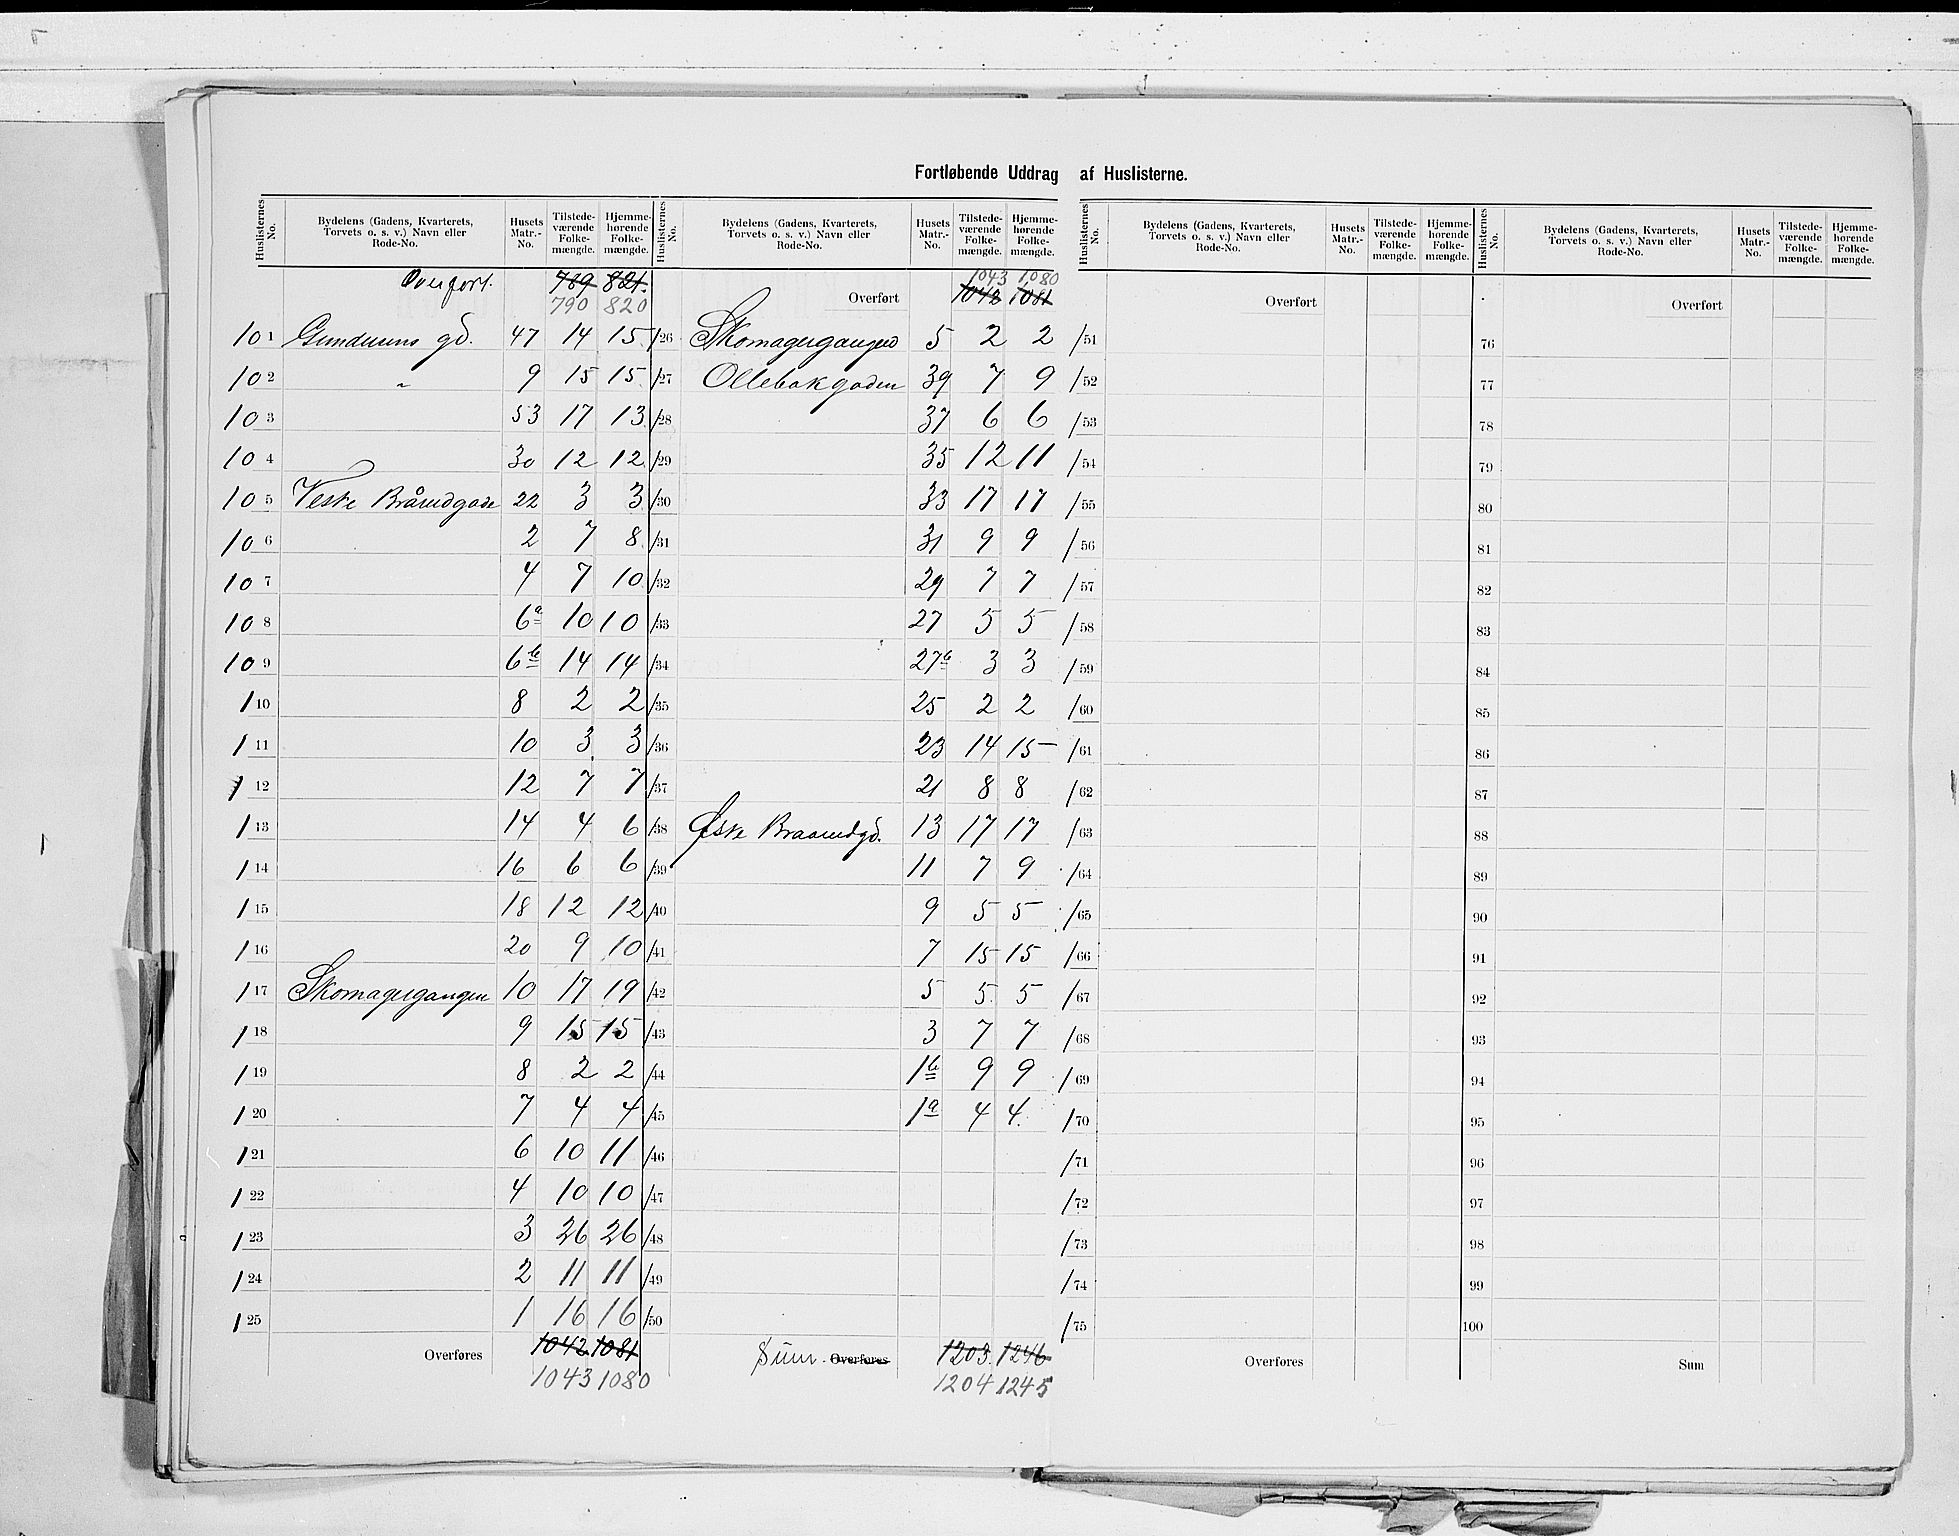 Fortløbende Uddrag af Huslisterne.
Huslisternes No. Bydelens (Gadens, Kvarterets, Torvets o. s. v.) Navn eller Rode-No. Husets Matr.-No. Tilstedeværende Folkemængde. Hjemmehørende Folkemængde. Huslisternes No. Bydelens (Gadens, Kvarterets, Torvets o. s. v.) Navn eller Rode-No. Husets Matr.-No. Tilstedeværende Folkemængde. Hjemmehørende Folkemængde. Huslisternes No. Bydelens (Gadens, Kvarterets, Torvets o. s. v.) Navn eller Rode-No. Husets Matr.-No. Tilstedeværende Folkemængde. Hjemmehørende Folkemængde. Huslisternes No. Bydelens (Gadens, Kvarterets, Torvets o. s. v.) Navn eller Rode-No. Husets Matr.-No. Tilstedeværende Folkemængde. Hjemmehørende Folkemængde.
Overført. 789 821. 1043 1080
790 820 Overført 1042 1081 Overført Overført
101 47 14 15 /26 Skomagergangen 5 2 2 /51 76
102 " 9 15 15 /27 Ollebakgaden 39 7 9 /52 77
103 53 17 13 /28 37 6 6 /53 78
104 30 12 12 /29 35 12 11 /54 79
105 Vestre Bråvedgade 22 3 3 /30 33 17 17 /55 80
106 2 7 8 /31 31 9 9 /56 81
107 4 7 10 /32 29 7 7 /57 82
108 6a 10 10 /33 27 5 5 /58 83
109 6b 14 14 /34 27b 3 3 /59 84
110 8 2 2 /35 25 2 2 /60 85
111 10 3 3 /36 23 14 15 /61 86
112 12 7 7 /37 21 8 8 /62 87
113 14 4 6 /38 13 17 17 /63 88
114 16 6 6 /39 11 7 9 /64 89
115 18 12 12 /40 9 5 5 /65 90
116 20 9 10 /41 7 15 15 /66 91
117 Skomagergangen 10 17 19 /42 5 5 5 /67 92
118 9 15 15 /43 3 7 7 /68 93
119 8 2 2 /44 1b 9 9 /69 94
120 7 4 4 /45 1a 4 4. /70 95
121 6 10 11 /46 /71 96
122 4 10 10 /47 /72 97
123 3 26 26 /48 /73 98
124 2 11 11 /49 /74 99
125 1 16 16 /50 /75 100
Overføres 1042 1081 Sum. Overføres 1203 1246 Overføres Sum
1043 1080 1204 1245